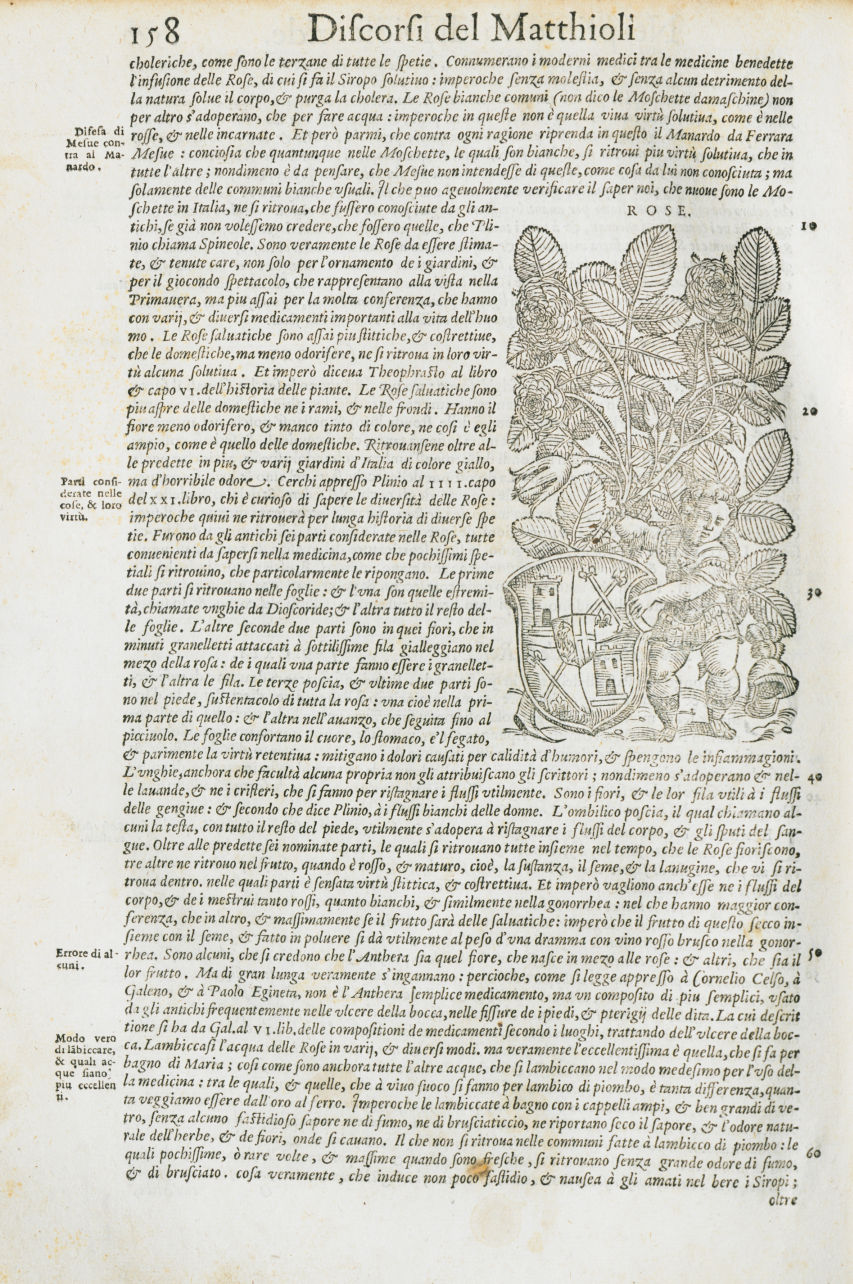 158 Diſcorſi del Matthioli
choleriche, come ſono le terzane di tutte le ſpetie. Connumerano i moderni medici tra le medicine benedette
l'infuſione delle Roſe, di cui ſi fà il Siropo ſolutiuo: imperoche ſenza moleſtia, & ſenza alcun detrimento del-
la natura ſolue il corpo, & purga la cholera. Le Roſe bianche comuni (non dico le Moſchette damaſchine) non
per altro s'adoperano, che per fare acqua: imperoche in queſte non è quella viua virtù ſolutiua, come è nelle
Difeſa di
Meſue con-
tra al Ma-
nardo.
roſſe, & nelle incarnate. Et però parmi, che contra ogni ragione riprenda in queſto il Manardo da Ferrara
Meſue: concioſia che quantunque nelle Moſchette, le quali ſon bianche, ſi ritroui piu virtù ſolutiua, che in
tutte l'altre; nondimeno è da penſare, che Meſue non intendeſſe di queſte, come coſa da lui non conoſciuta; ma
ſolamente delle communi bianche vſuali. Il che puo ageuolmente verificare il ſaper noi, che nuoue ſono le Mo-
ſchette in Italia, ne ſi ritroua, che fuſſero conoſciute da gli an-
tichi, ſe già non voleſſemo credere, che foſſero quelle, che Pli-
nio chiama Spineole. Sono veramente le Roſe da eſſere ſtima-
te, & tenute care, non ſolo per l'ornamento de i giardini, &
per il giocondo ſpettacolo, che rappreſentano alla viſta nella
Primauera, ma piu aſſai per la molta conferenza, che hanno
con varij, & diuerſi medicamenti importanti alla vita dell'huo
mo. Le Roſe ſaluatiche ſono aſſai piu ſtittiche, & coſtrettiue,
che le domeſtiche, ma meno odorifere, ne ſi ritroua in loro vir-
tù alcuna ſolutiua. Et imperò diceua Theophraſto al libro
& capo VI. dell'hiſtoria delle piante. Le Roſe ſaluatiche ſono
piu aſpre delle domeſtiche ne i rami, & nelle frondi. Hanno il
fiore meno odorifero, & manco tinto di colore, ne coſi è egli
ampio, come è quello delle domeſtiche. Ritrouanſene oltre al-
le predette in piu, & varij giardini d'Italia di colore giallo,
ma d'horribile odore. Cerchi appreſſo Plinio al IIII. capo
Parti conſi-
derate nelle
coſe, & loro
virtù.
del XXI. libro, chi è curioſo di ſapere le diuerſità delle Roſe:
imperoche quiui ne ritrouerà per lunga hiſtoria di diuerſe ſpe
tie. Furono da gli antichi ſei parti conſiderate nelle Roſe, tutte
conuenienti da ſaperſi nella medicina, come che pochiſſimi ſpe-
tiali ſi ritrouino, che particolarmente le ripongano. Le prime
due parti ſi ritrouano nelle foglie: & l'vna ſon quelle eſtremi-
tà, chiamate vnghie da Dioſcoride; & l'altra tutto il reſto del-
le foglie. L'altre ſeconde due parti ſono in quei fiori, che in
minuti granelletti attaccati à ſottiliſſime fila gialleggiano nel
mezo della roſa: de i quali vna parte fanno eſſere i granellet-
ti, & l'altra le fila. Le terze poſcia, & vltime due parti ſo-
no nel piede, ſuſtentacolo di tutta la roſa: vna cioè nella pri-
ma parte di quello: & l'altra nell'auanzo, che ſeguita fino al
picciuolo. Le foglie confortano il cuore, lo ſtomaco, e'l fegato,
ROSE.
10
20
30
& parimente la virtù retentiua: mitigano i dolori cauſati per calidità d'humori, & ſpengono le infiammagioni.
L'vnghie, anchora che facultà alcuna propria non gli attribuiſcano gli ſcrittori; nondimeno s'adoperano & nel- 40
le lauande, & ne i criſteri, che ſi fanno per riſtagnare i fluſſi vtilmente. Sono i fiori, & le lor fila vtili à i fluſſi
delle gengiue: & ſecondo che dice Plinio, à i fluſſi bianchi delle donne. L'ombilico poſcia, il qual chiamano al-
cuni la teſta, con tutto il reſto del piede, vtilmente s'adopera à riſtagnare i fluſſi del corpo, & gli ſputi del ſan-
gue. Oltre alle predette ſei nominate parti, le quali ſi ritrouano tutte inſieme nel tempo, che le Roſe fioriſcono,
tre altre ne ritrouo nel frutto, quando è roſſo, & maturo, cioè, la ſuſtanza, il ſeme, & la lanugine, che vi ſi ri-
troua dentro. nelle quali parti è ſenſata virtù ſtittica, & coſtrettiua. Et imperò vagliono anch'eſſe ne i fluſſi del
corpo, & de i meſtrui tanto roſſi, quanto bianchi, & ſimilmente nella gonorrhea: nel che hanno maggior con-
ferenza, che in altro, & maſſimamente ſe il frutto ſarà delle ſaluatiche: imperò che il frutto di queſto ſecco in-
ſieme con il ſeme, & fatto in poluere ſi dà vtilmente al peſo d'vna dramma con vino roſſo bruſco nella gonor-
Errore di al-
cuni.
rhea. Sono alcuni, che ſi credono che l'Anthera ſia quel fiore, che naſce in mezo alle roſe: & altri, che ſia il 50
lor frutto. Ma di gran lunga veramente s'ingannano: percioche, come ſi legge appreſſo à Cornelio Celſo, à
Galeno, & à Paolo Egineta, non è l'Anthera ſemplice medicamento, ma vn compoſito di piu ſemplici, vſato
da gli antichi frequentemente nelle vlcere della bocca, nelle fiſſure de i piedi, & pterigij delle dita. La cui deſcrit
tione ſi ha da Gal. al VI. lib. delle compoſitioni de medicamenti ſecondo i luoghi, trattando dell'vlcere della boc-
Modo vero
di läbiccare,
& quali ac-
que ſiano
piu eccellen
ti.
ca. Lambiccaſi l'acqua delle Roſe in varij, & diuerſi modi. ma veramente l'eccellentiſſima è quella, che ſi fa per
bagno di Maria; coſi come ſono anchora tutte l'altre acque, che ſi lambiccano nel modo medeſimo per l'vſo del-
la medicina: tra le quali, & quelle, che à viuo fuoco ſi fanno per lambico di piombo, è tanta differenza, quan-
ta veggiamo eſſere dall'oro al ferro. Imperoche le lambiccate à bagno con i cappelli ampi, & ben grandi di ve-
tro, ſenza alcuno faſtidioſo ſapore ne di fumo, ne di bruſciaticcio, ne riportano ſeco il ſapore, & l'odore natu-
rale dell'herbe, & de fiori, onde ſi cauano. Il che non ſi ritroua nelle communi fatte à lambicco di piombo: le
quali pochiſſime, ò rare volte, & maſſime quando ſono freſche, ſi ritrouano ſenza grande odore di fumo, 60
& di bruſciato. coſa veramente, che induce non poco faſtidio, & nauſea à gli amati nel bere i Siropi;
oltre